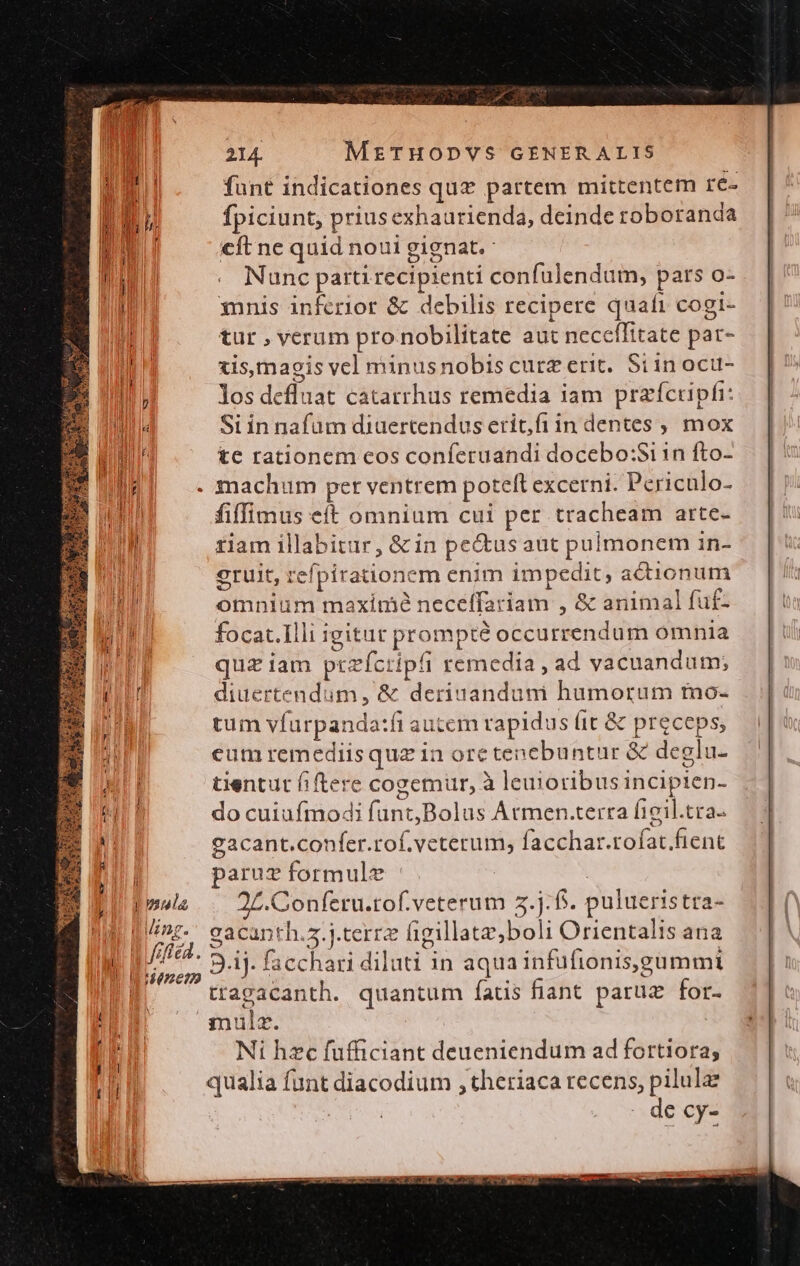 214 METHODVS GENERALIS
ſunt indicationes quæ partem mittentem re-
ſpiciunt, prius exhaurienda, deinde roboranda
eſt ne quid noui gignat.
Nunc parti recipienti conſulendum, pars o-
mnis inferior & debilis recipere quaſi cogi-
tur, verum pro nobilitate aut neceſſitate par-
tis, magis vel minus nobis curæ erit. Si in ocu-
los defluat catarrhus remedia iam præſcripſi:
Si in naſum diuertendus erit, ſi in dentes, mox
te rationem eos conſeruandi docebo: Si in ſto-
machum per ventrem poteſt excerni. Periculo-
ſiſſimus eſt omnium cui per tracheam arte-
riam illabitur, & in pectus aut pulmonem in-
gruit, reſpirationem enim impedit, actionum
omnium maximè neceſſariam, & animal ſuf-
focat. Illi igitur promptè occurrendum omnia
quæ iam præſcripſi remedia, ad vacuandum,
diuertendum, & deriuandum humorum mo-
tum vſurpanda: ſi autem rapidus ſit & preceps,
eum remediis quæ in ore tenebuntur & deglu-
tientur ſiſtere cogemur, à leuioribus incipien-
do cuiuſmodi ſunt, Bolus Armen. terra ſigil. tra-
gacant. conſer. roſ. veterum, ſacchar. roſat. fient
paruæ formulæ
mula ℞. Conſeru. roſ. veterum ʒ. j. ß. pulueris tra-
ling. gacanth. ʒ. j. terræ ſigillatæ, boli Orientalis ana
ſiſſed. ℈. ij. ſacchari diluti in aqua infuſionis, gummi
tragacanth. quantum ſatis fiant paruæ for-
mulæ.
Ni hæc ſufficiant deueniendum ad fortiora,
qualia ſunt diacodium, theriaca recens, pilulæ
de cy-